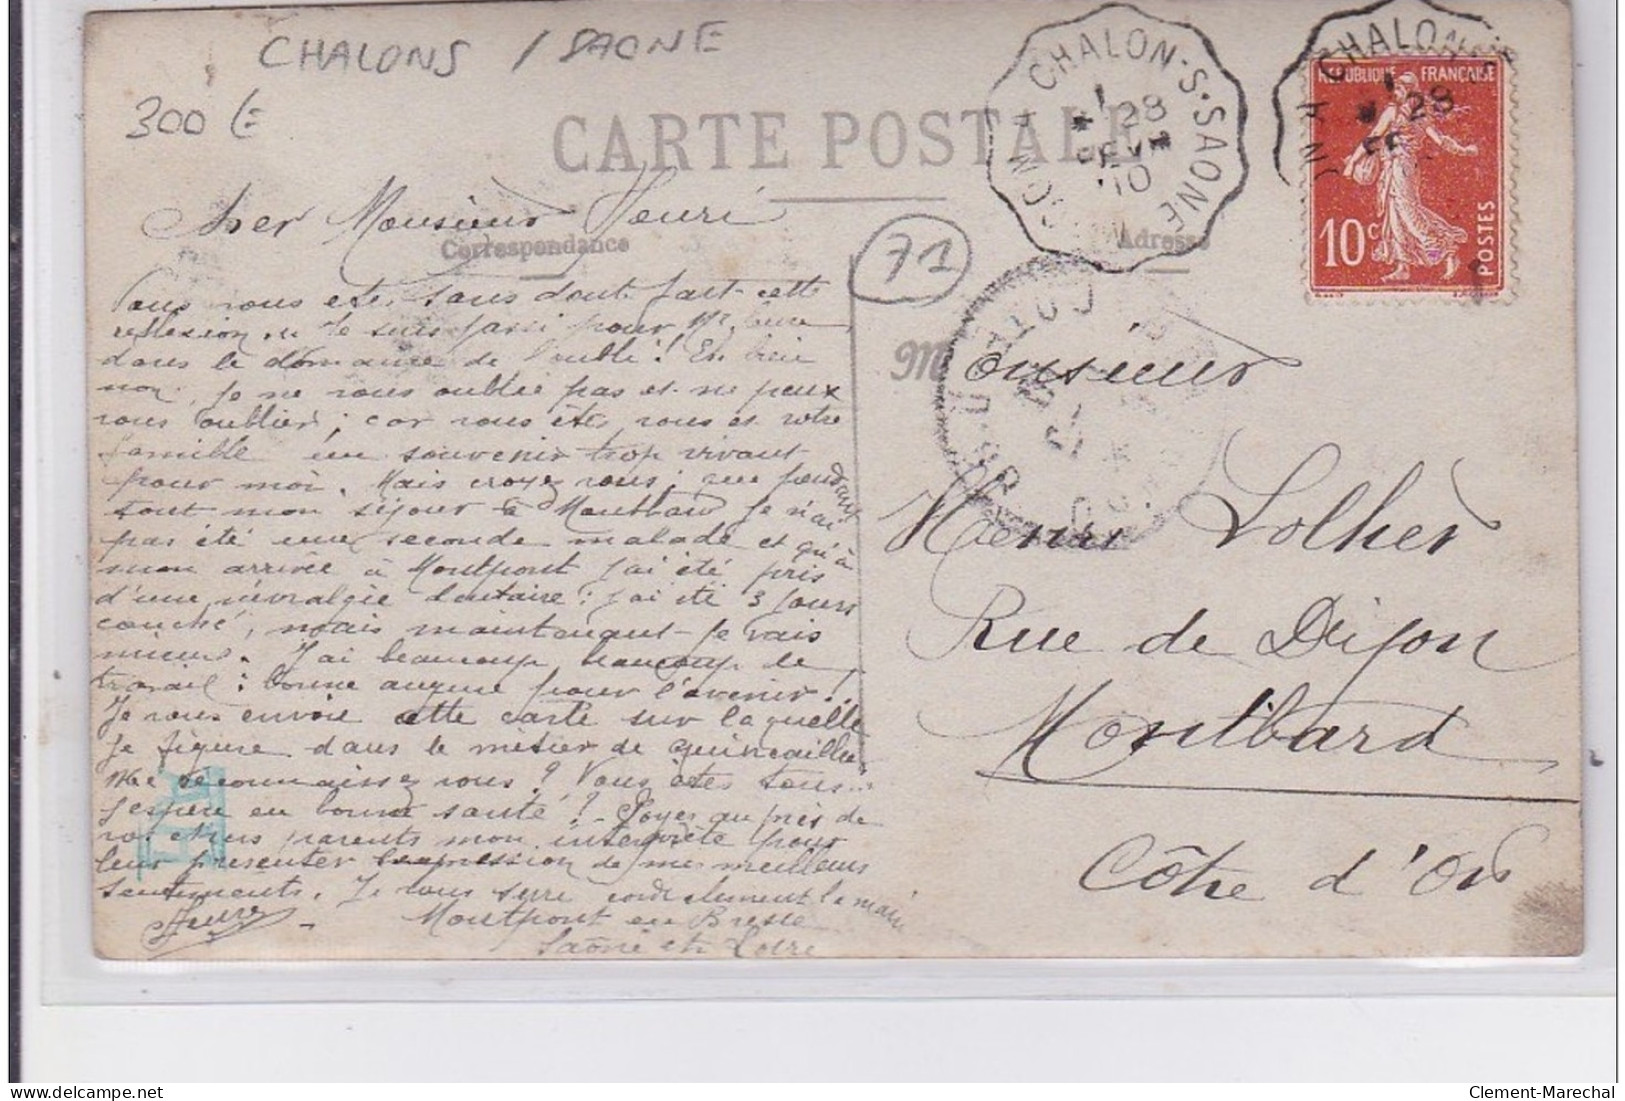 CHALONS / SAONE
300 E
CARTE POSTALE
CHALON-S-SAONE
28
10
CHALON
28
RÉPUBLIQUE FRANÇAISE
10c
POSTES
Correspondance
Adresse
71
Cher Monsieur Henri
Vous vous etes sans dout fait cette
reflexion, " Je suis passé pour Mr
dans le domaine de l'oubli! Eh bien
non, Je ne vous oublie pas et ne peux
vous oublier; car vous êtes, vous et votre
famille un souvenir trop vivant
pour moi. Mais croyez vous, que pendant
tout mon séjour à Montbard Je n'ai
pas été une seconde malade et qu'à
mon arrivée à Montpont J'ai été pris
d'une névralgie dentaire: J'ai été 3 Jours
couché, mais maintenant Je vais
mieux. J'ai beaucoup, beaucoup de
travail: bonne augure pour l'avenir!
Je vous envoie cette carte sur laquelle
Je figure dans le métier de quincailler
Me reconnaissez vous? Vous êtes tous
J'espère en bonne santé? Soyez auprès de
vos chers parents mon interprète pour
leur présenter l'expression de mes meilleurs
sentiments. Je vous serre cordialement la main
Montpont en Bresse
Saône et Loire
COTE D
M
Monsieur
Henri Lolher
Rue de Dijon
Montbard
Côte d'Or
Clement-Marechal